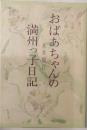 おばあちゃんの
満州っ子日記